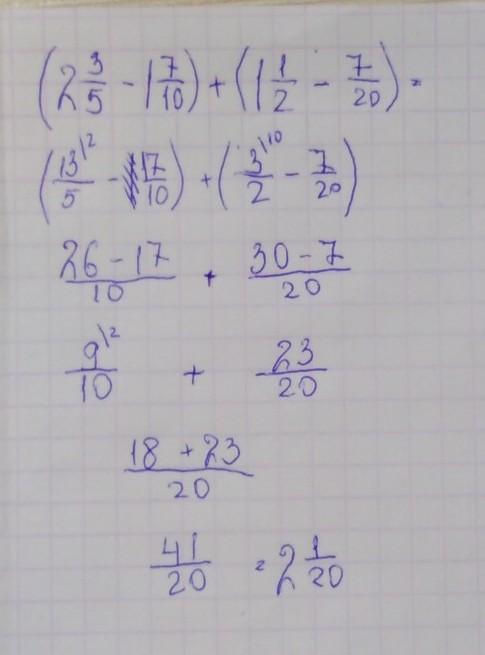 (2 3/5 - 1 7/10) + (1 1/2 - 7/20) =
(13\2/5 - 17/10) + (3\10/2 - 7/20)
26 - 17/10 + 30 - 7/20
9\2/10 + 23/20
18 + 23/20
41/20 = 2 1/20